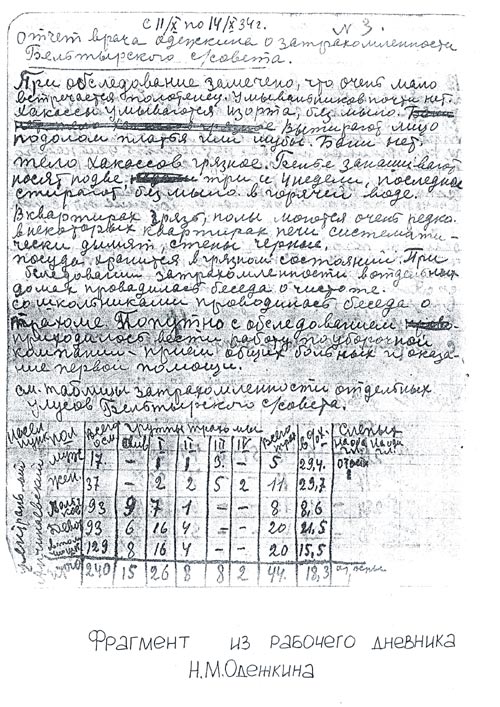 с 11/X по 14/X 34 г. № 3.
Отчет врача Одежкина о затрахомленности
Бельтырского с/совета.
При обследование замечено, что очень мало
встречается полотенец. Умывальников почти нет.
Хакассы умываются изо рта, без мыла.
Вытирают лицо
подолом платья или шубы. Бани нет.
Тело хакассов грязное. Белье занашивают
носят по две три и 4 недели, последнее
стирают без мыла в горячей воде.
В квартирах грязь, полы моются очень редко.
В некоторых квартирах печи системати-
чески дымят, стены черные,
посуда хранится в грязном состоянии. При
обследовании затрахомленности в отдельных
домах проводилась беседа о чистоте.
Со школьниками проводилась беседа о
трахоме. Попутно с обследованием
приходилось вести работу по уборочной
кампании - прием общих больных и оказа-
ние первой помощи.
см. таблицы затрахомленности отдельных
улусов Бельтырского с/совета.
Насел. пункт пол всего осм. группы трахомы всего трах. в % Слепых
I II III IV
муж 17 - 1 1 3 - 5 29,4
жен. 37 - 2 2 5 2 11 29,7
93 9 7 1 - - 8 8,6
93 6 16 4 - - 20 21,5
129 8 16 4 - - 20 15,5
итого 240 15 26 8 8 2 44 18,3
Фрагмент из рабочего дневника
Н.М.Одежкина